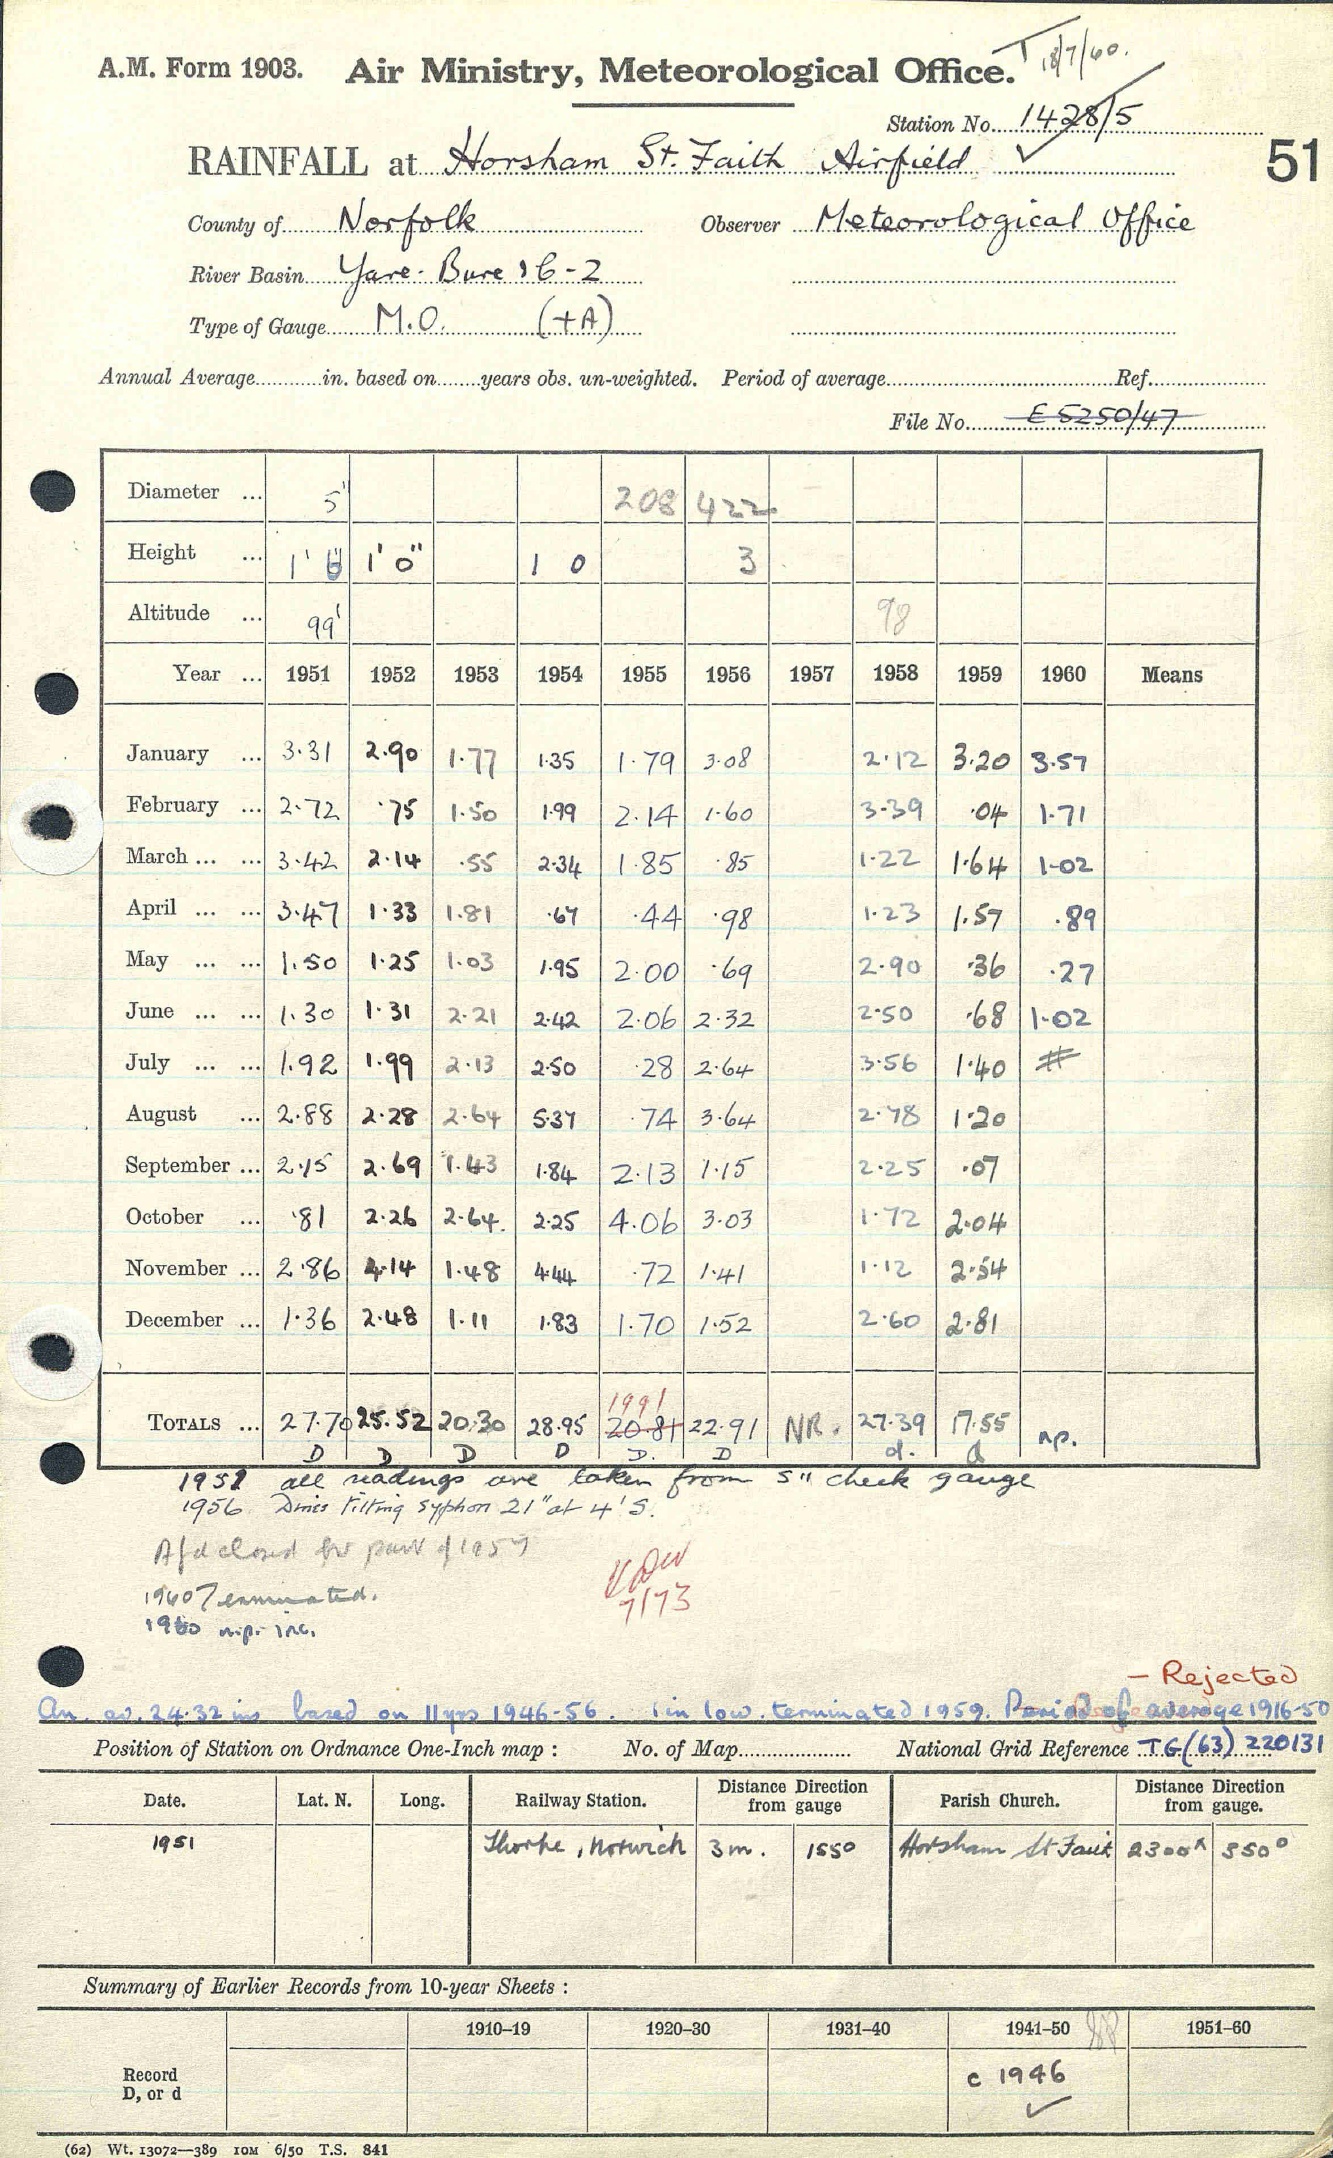 T 18/7/60.
A.M. Form 1903. Air Ministry, Meteorological Office.
Station No. 1428/5
RAINFALL at Horsham St. Faith Airfield
51
County of Norfolk Observer Meteorological Office
River Basin Yare-Bure 16-2
Type of Gauge M.O. (+A)
Annual Average in. based on years obs. un-weighted. Period of average Ref.
File No. E 5250/47
Diameter ... 5" 208 422
Height ... 1' 6" 1' 0" 1 0 3
Altitude ... 99' 98
Year ... 1951 1952 1953 1954 1955 1956 1957 1958 1959 1960 Means
January ... 3.31 2.90 1.77 1.35 1.79 3.08 2.12 3.20 3.57
February ... 2.72 .75 1.50 1.99 2.14 1.60 3.39 .04 1.71
March ... ... 3.42 2.14 .55 2.34 1.85 .85 1.22 1.64 1.02
April ... ... 3.47 1.33 1.81 .67 .44 .98 1.23 1.57 .89
May ... ... 1.50 1.25 1.03 1.95 2.00 .69 2.90 .36 .27
June ... ... 1.30 1.31 2.21 2.42 2.06 2.32 2.50 .68 1.02
July ... ... 1.92 1.99 2.13 2.50 .28 2.64 3.56 1.40 #
August ... 2.88 2.28 2.64 5.37 .74 3.64 2.78 1.20
September ... 2.15 2.69 1.43 1.84 2.13 1.15 2.25 .07
October ... .81 2.26 2.64 2.25 4.06 3.03 1.72 2.04
November ... 2.86 4.14 1.48 4.44 .72 1.41 1.12 2.54
December ... 1.36 2.48 1.11 1.83 1.70 1.52 2.60 2.81
1991
TOTALS ... 27.70 25.52 20.30 28.95 20.81 22.91 NR. 27.39 17.55 np.
D D D D D. D d. d
1951 all readings are taken from 5" check gauge
1956 Dines Tilting Syphon 21" at 4' S.
Afd closed for part of 1957
1960 Terminated.
1960 n.p. inc.
7/73
- Rejected
An. av. 24.32 ins based on 11 yrs 1946-56. 1 in low. terminated 1959. Period of average 1916-50
Position of Station on Ordnance One-Inch map : No. of Map National Grid Reference TG (63) 220131
Date. Lat. N. Long. Railway Station. Distance Direction from gauge Parish Church. Distance Direction from gauge.
1951 Thorpe, Norwich 3m. 155° Horsham St Faith 2300x 350°
Summary of Earlier Records from 10-year Sheets :
1910–19 1920–30 1931–40 1941–50 1951–60
Record
D, or d
c 1946
(62) Wt. 13072—389 10M 6/50 T.S. 841